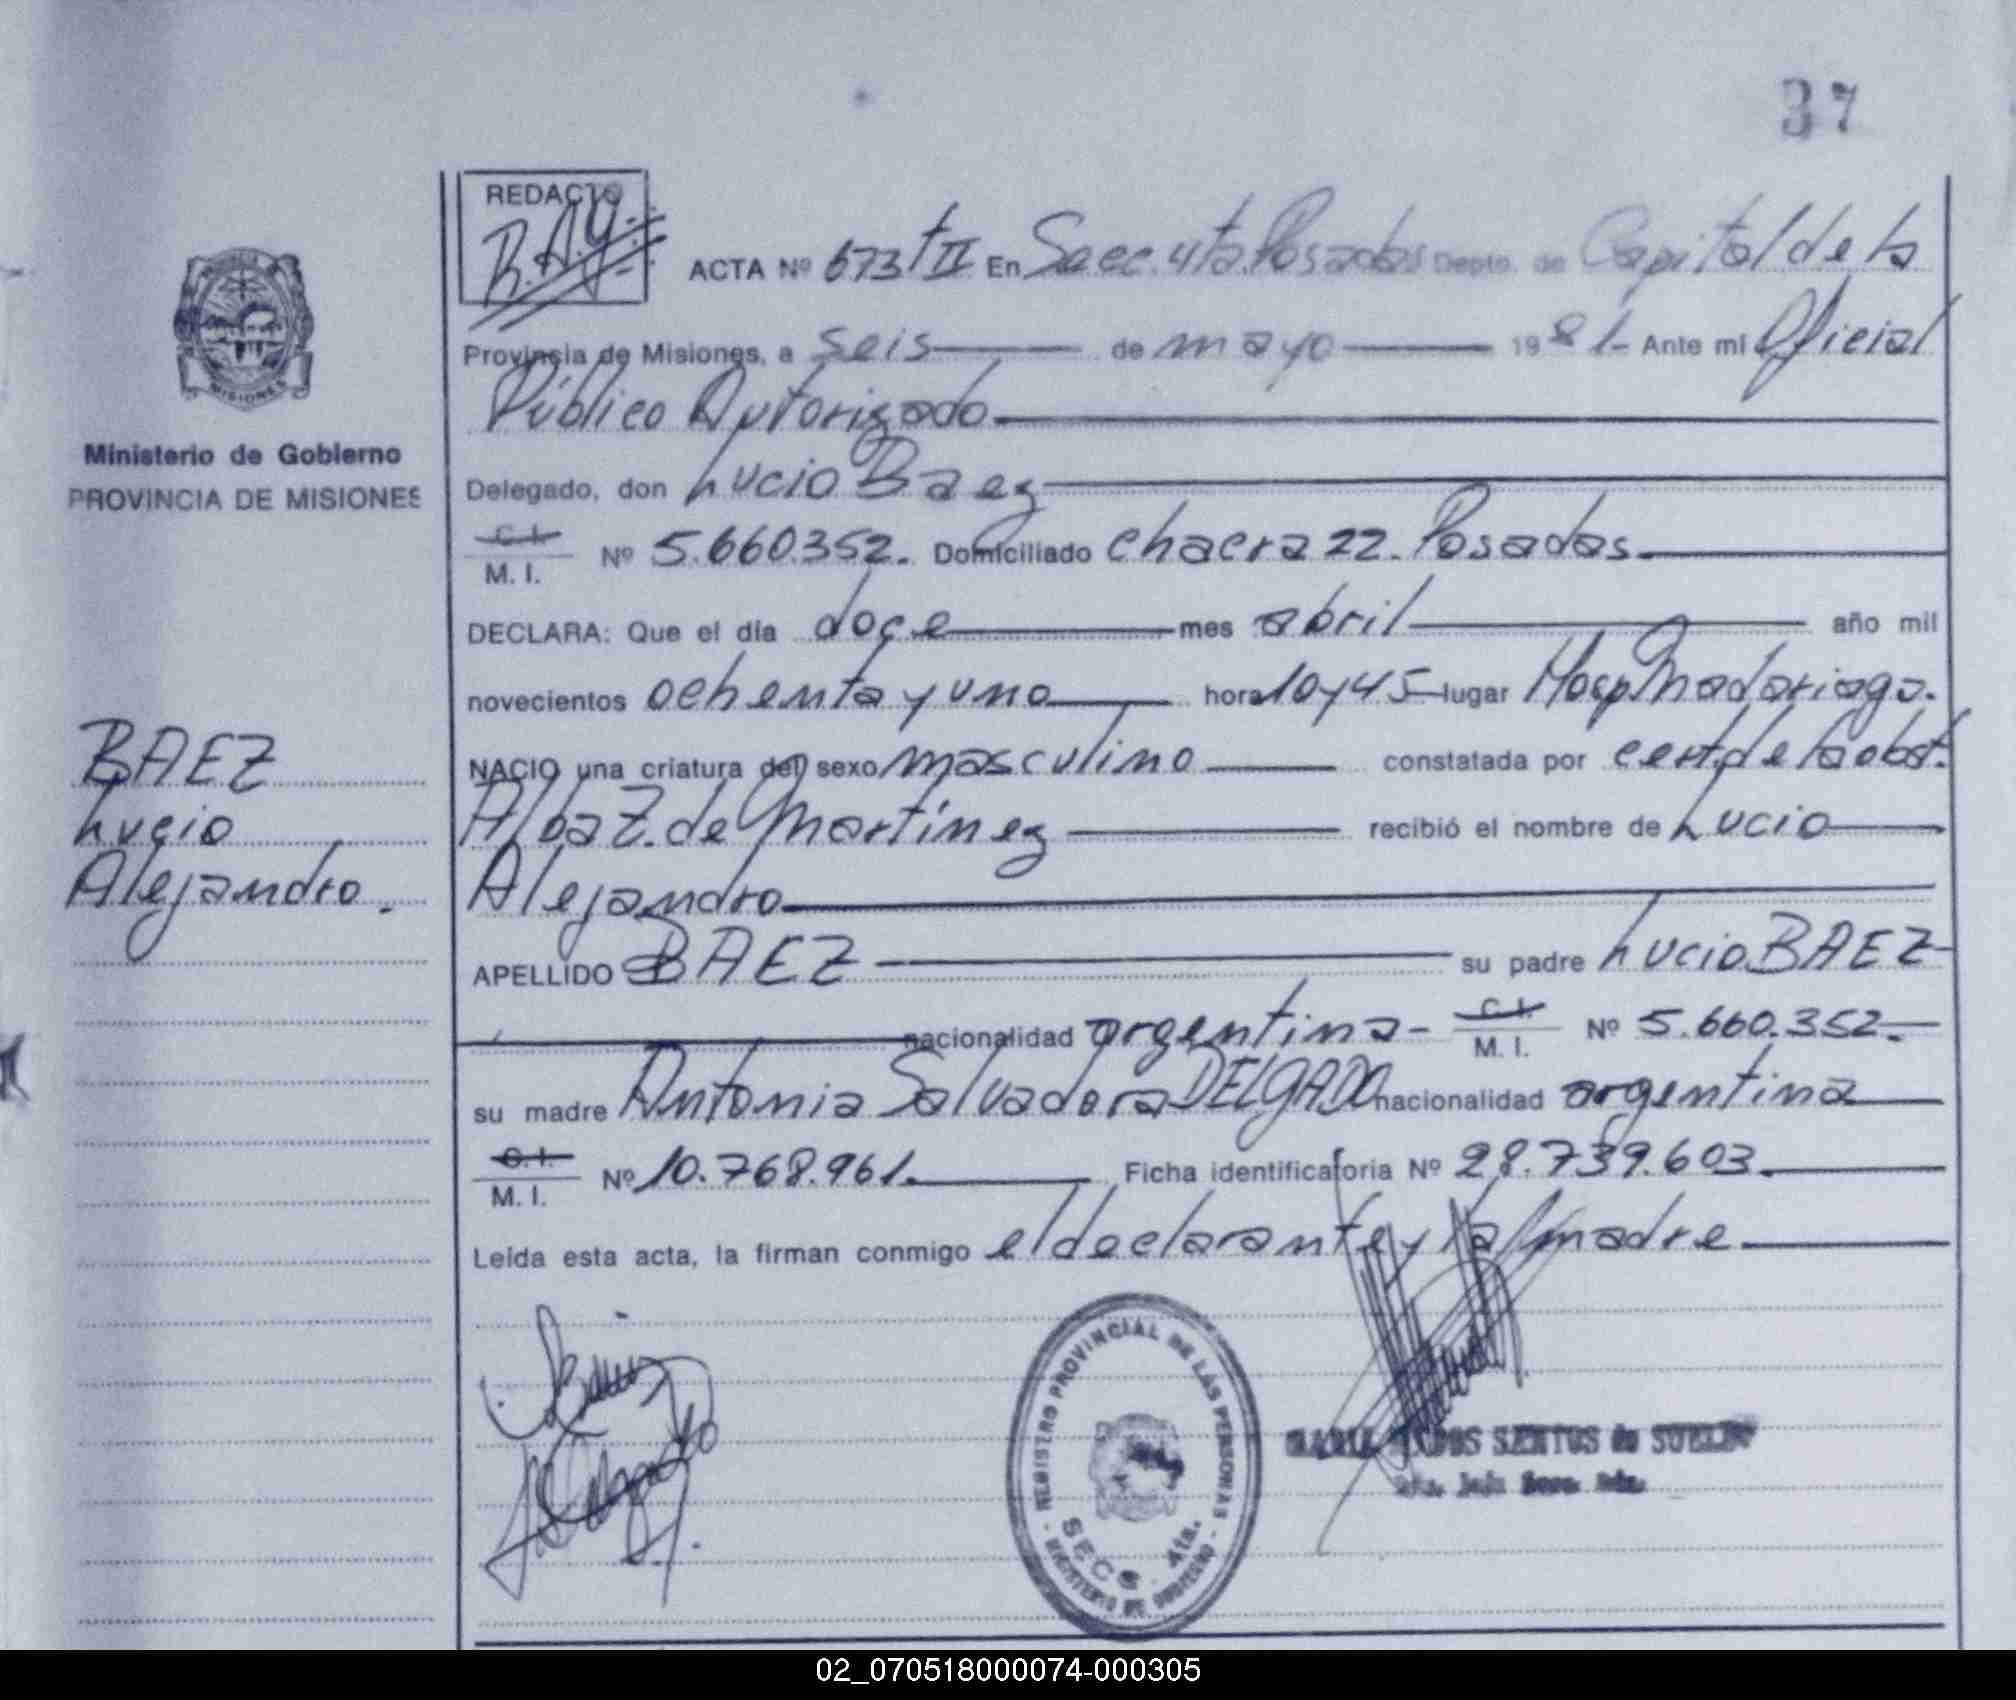 37
REDACTO
B.A.Y.
ACTA Nº 673 tII En Secc. 4ta. Posadas Depto. de Capital de la
Provincia de Misiones, a seis de mayo 1981- Ante mi Oficial
Público Autorizado
Ministerio de Gobierno
PROVINCIA DE MISIONES
Delegado, don Lucio Baez
C. I.
M. I.
Nº 5.660.352. Domiciliado chacra 22. Posadas.
DECLARA: Que el día doce mes abril año mil
novecientos ochenta y uno hora 10 y 45 lugar Hosp Madariaga.
BAEZ
Lucio
Alejandro.
NACIO una criatura del sexo masculino constatada por cert. de la obst.
Alba Z. de Martínez recibió el nombre de Lucio
Alejandro
APELLIDO BAEZ su padre Lucio BAEZ
nacionalidad argentina- C. I. M. I. Nº 5.660.352.
su madre Antonia Salvadora DELGADO nacionalidad argentina
C. I.
M. I.
Nº 10.768.961. Ficha identificatoria Nº 28.739.603.
Leída esta acta, la firman conmigo el declarante y la madre
REGISTRO PROVINCIAL DE LAS PERSONAS
SECC. 4ta.
MINISTERIO DE GOBIERNO
SANTOS de
02_070518000074-000305